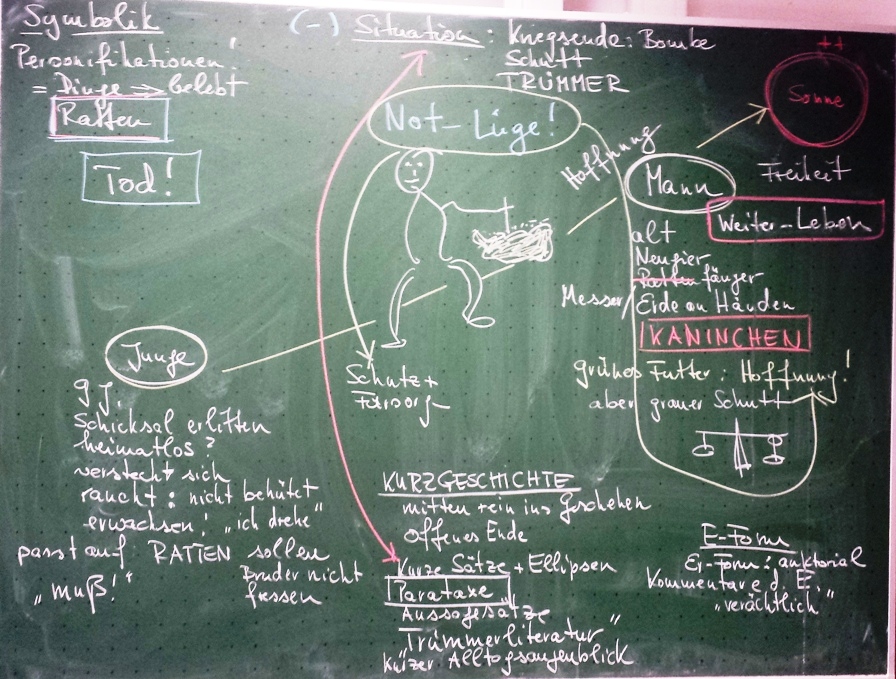 Symbolik
Personifikationen!
= Dinge → belebt
Ratten
Tod!
(-) Situation : Kriegsende: Bombe
Schutt
TRÜMMER
Not-Lüge!
Hoffnung
Sonne
++
Mann
Freiheit
Weiter-Leben
alt
Neugier
Rattenfänger
Messer/ Erde an Händen
KANINCHEN
grünes Futter: Hoffnung!
aber grauer Schutt
Junge
9 J.
Schicksal erlitten
heimatlos?
versteckt sich
raucht: nicht behütet
erwachsen! „ich drehe“
passt auf RATTEN sollen
Bruder nicht
fressen
„muß!“
Schutz +
Fürsorg
KURZGESCHICHTE
mitten rein ins Geschehen
offenes Ende
Kurze Sätze + Ellipsen
Parataxe
Aussagesätze
„Trümmerliteratur“
kurzer Alltagsaugenblick
E-Form
Er-Form: auktorial
Kommentare d. E.
„verächtlich“